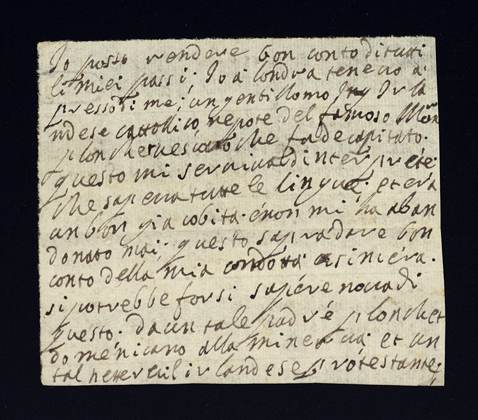 Io posso rendere bon conto di tutti
li miei passi; Io a londra tenevo a
presso di me; un gentilomo Irla
ndese cattolico nepote del famoso
plonchet vescovo che fu decapitato.
questo mi serviva d interprete.
che sapeva tutte le lingue. et era
un bon giacobita. e non mi ha aban
donato mai; questo sapra dare bon
conto della mia condotta sincera.
si potrebbe forsi sapere nova di
questo. da un tale padre plonchet
domenicano alla minerva; et un
tal irlandese protestante;